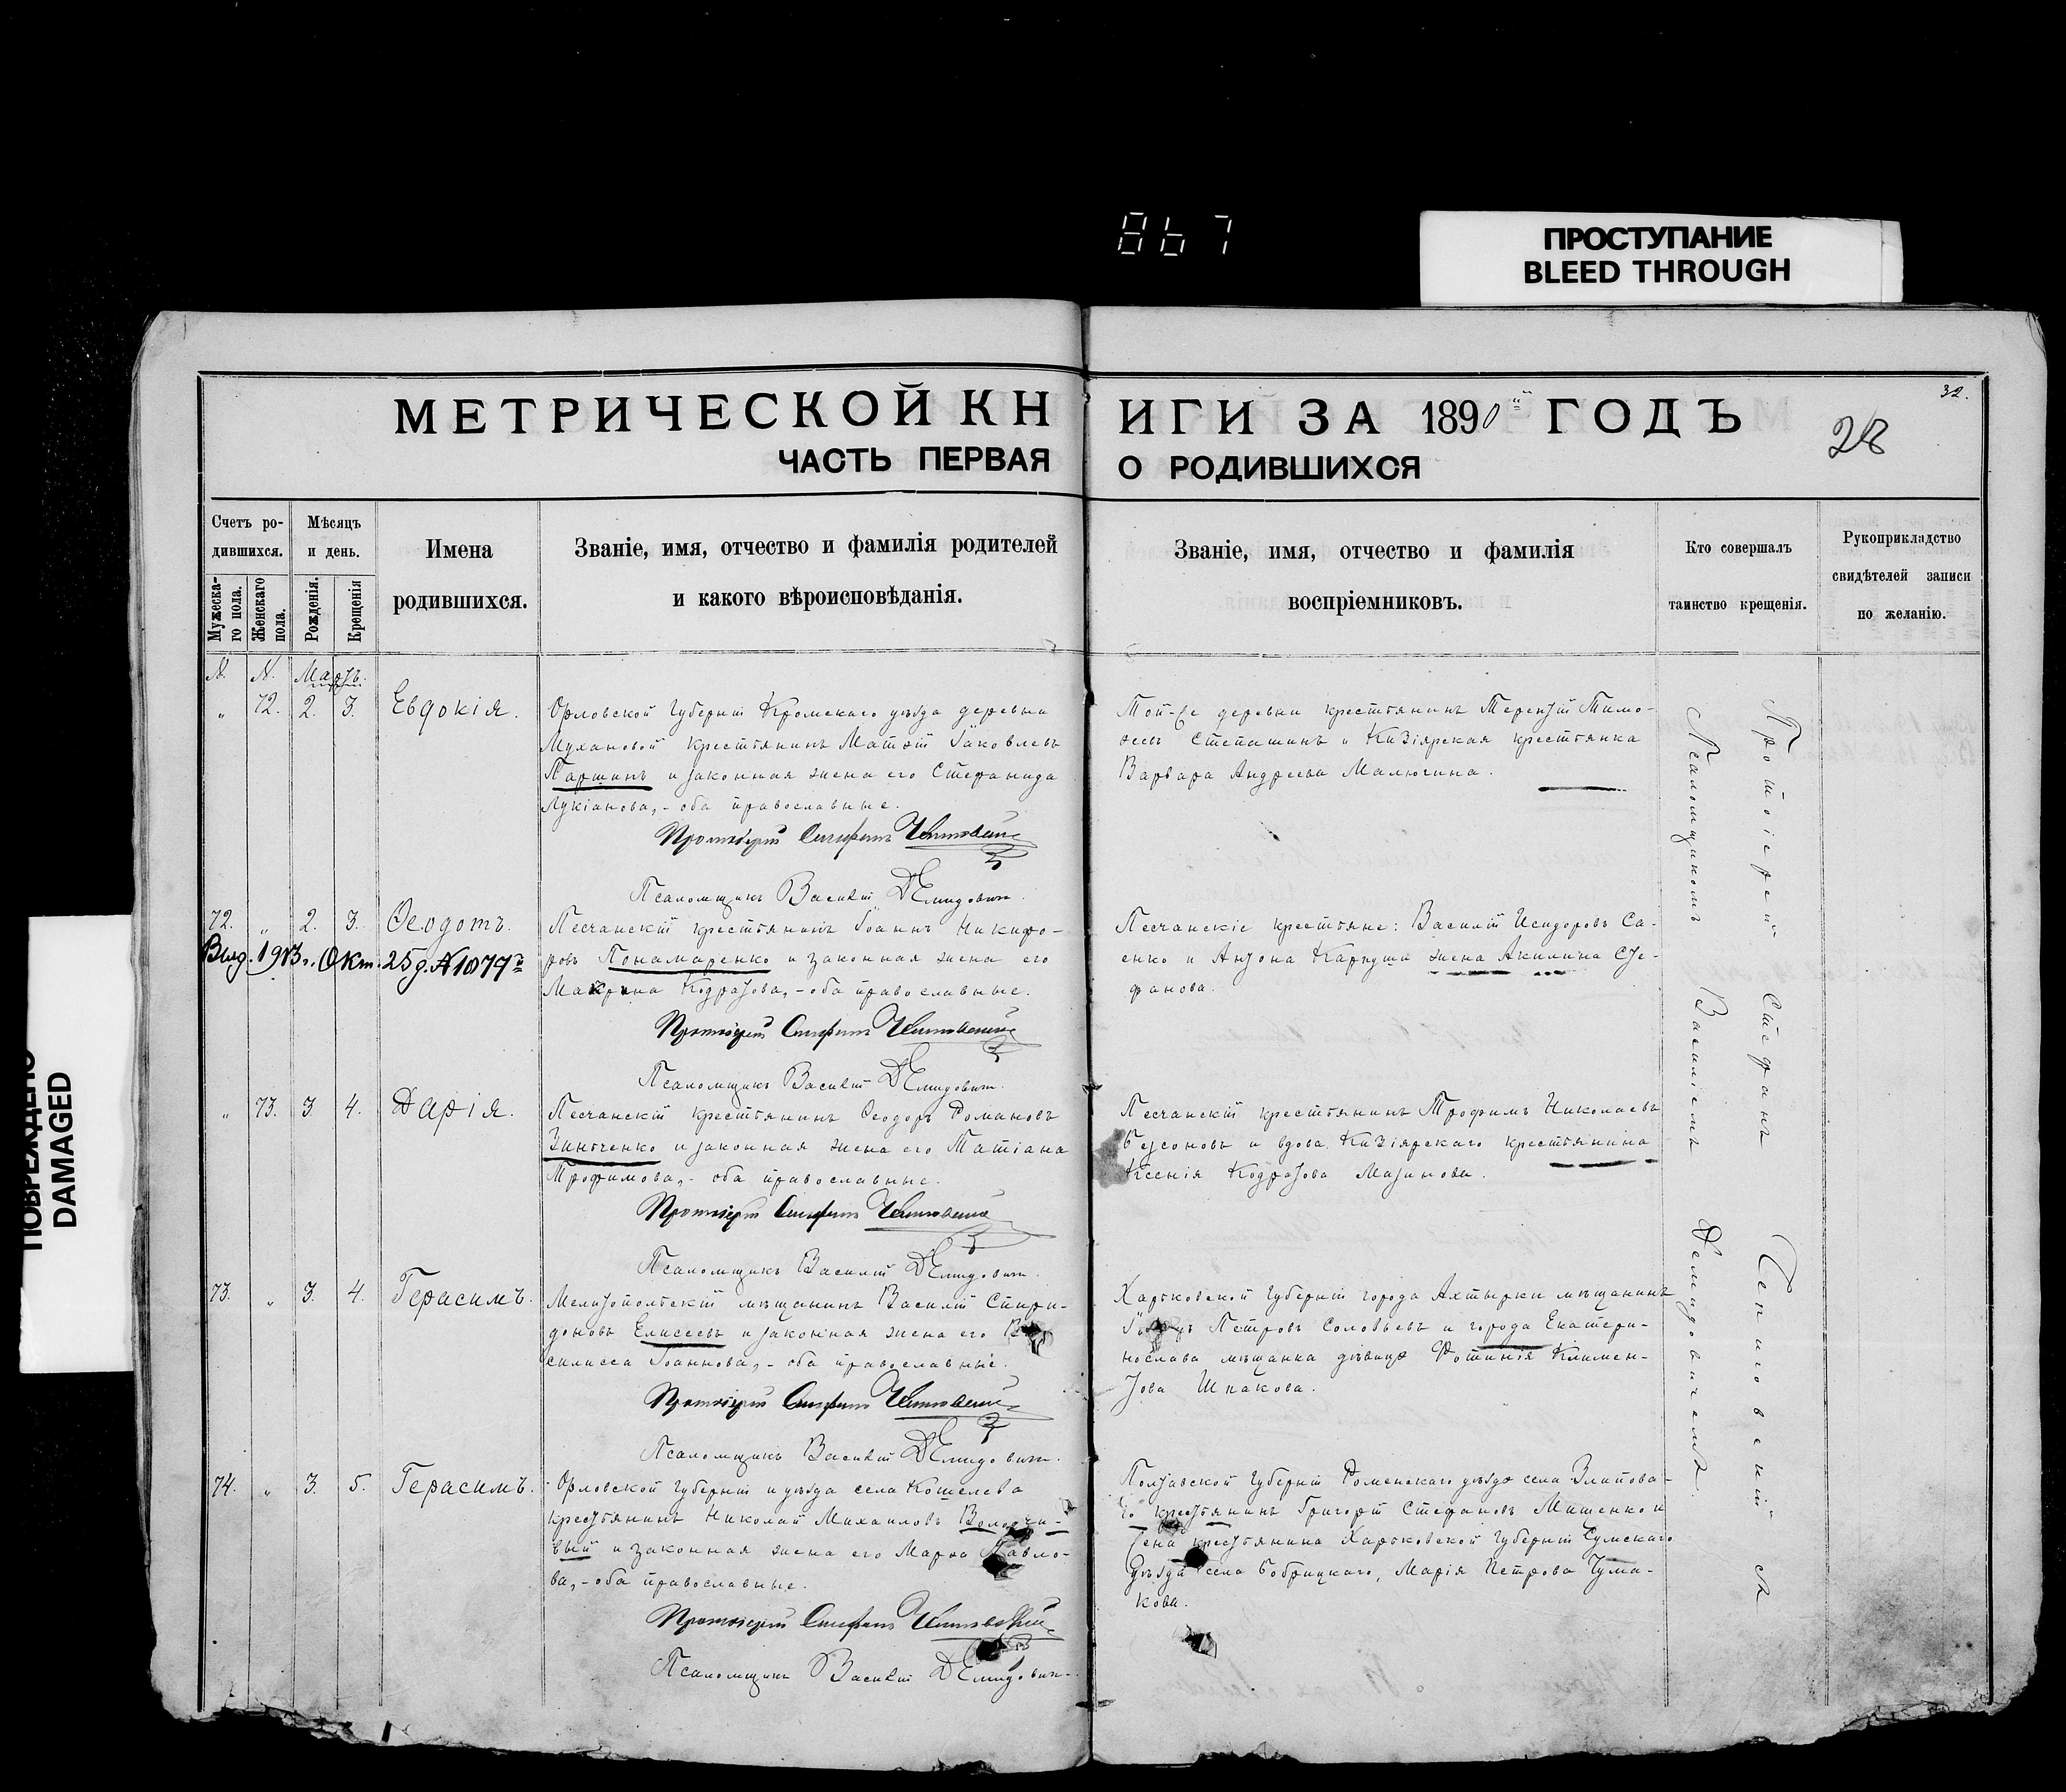 867
ПРОСТУПАНИЕ
BLEED THROUGH
ПОВРЕЖДЕНО
DAMAGED
32.
28
МЕТРИЧЕСКОЙ КНИГИ ЗА 1890й ГОДЪ
ЧАСТЬ ПЕРВАЯ О РОДИВШИХСЯ
Счетъ ро-
дившихся.
Мужеска-
го пола.
Женскаго
пола.
Мѣсяцъ
и день.
Рожденія.
Крещенія
Имена
родившихся.
Званіе, имя, отчество и фамилія родителей
и какого вѣроисповѣданія.
Званіе, имя, отчество и фамилія
воспріемниковъ.
Кто совершалъ
таинство крещенія.
Рукоприкладство
свидѣтелей записи
по желанію.
N. N. Мартъ.
„ 72. 2. 3. Евдокія.
Орловской Губерніи Кромскаго уѣзда деревни
Мухановой крестьянинъ Матѳій Іаковлевъ
Паршинъ и законная жена его Стефанида
Лукіанова, - оба православные.
Протоіерей Стефанъ
Псаломщикъ Василій Демидович.
Той-же деревни крестьянинъ Терентій Тимо-
ѳеевъ Степашинъ и Кизіярская крестьянка
Варвара Андреева Малютина.
72. „ 2. 3. Ѳеодотъ.
Выд. 1913 г. Окт. 25 д. № 1079
Песчанскій крестьянинъ Іоаннъ Никифо-
ровъ Понамаренко и законная жена его
Макрина Кодратова, - оба православные.
Протоіерей Стефанъ
Псаломщикъ Василій Демидович.
Песчанскіе крестьяне: Василій Исидоровъ Са-
енко и Антона Карпуша жена Акилина Сте-
фанова.
„ 73. 3. 4. Дарія.
Песчанскій крестьянинъ Ѳеодоръ Романовъ
Зинченко и законная жена его Татіана
Трофимова, - оба православные.
Протоіерей Стефанъ
Псаломщикъ Василій Демидович.
Песчанскій крестьянинъ Трофимъ Николаевъ
Безсоновъ и вдова Кизіярскаго крестьянина
Ксенія Кодратова Мазинова.
73. „ 3. 4. Герасимъ.
Мелитопольскій мѣщанинъ Василій Спири-
доновъ Елисеевъ и законная жена его Ва-
силисса Іоаннова, - оба православные.
Протоіерей Стефанъ
Псаломщикъ Василій Демидович.
Харьковской Губерніи города Ахтырки мѣщанинъ
Петровъ Соловьевъ и города Екатери-
нослава мѣщанка дѣвица Фотинія Климен-
това Шпакова.
74. „ 3. 5. Герасимъ.
Орловской Губерніи и уѣзда села Кошелева
крестьянинъ Николай Михаиловъ
вый и законная жена его Марѳа Павло-
ва, - оба православные.
Протоіерей Стефанъ
Псаломщикъ Василій Демидович.
Полтавской Губерніи Роменскаго уѣзда села
го крестьянинъ Григорій Стефановъ Мищенко и
жена крестьянина Харьковской Губерніи Сумскаго
уѣзда села Бобрицкаго, Марія Петрова Чума-
кова.
Протоіерей Стефанъ
Псаломщикомъ Василіемъ Демидовичемъ.